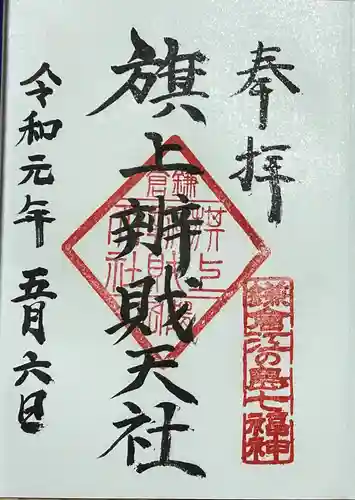 奉拝
旗上辨財天社
令和元年 五月六日
鎌倉
旗上
辨財天
社
鎌倉江の島七福神